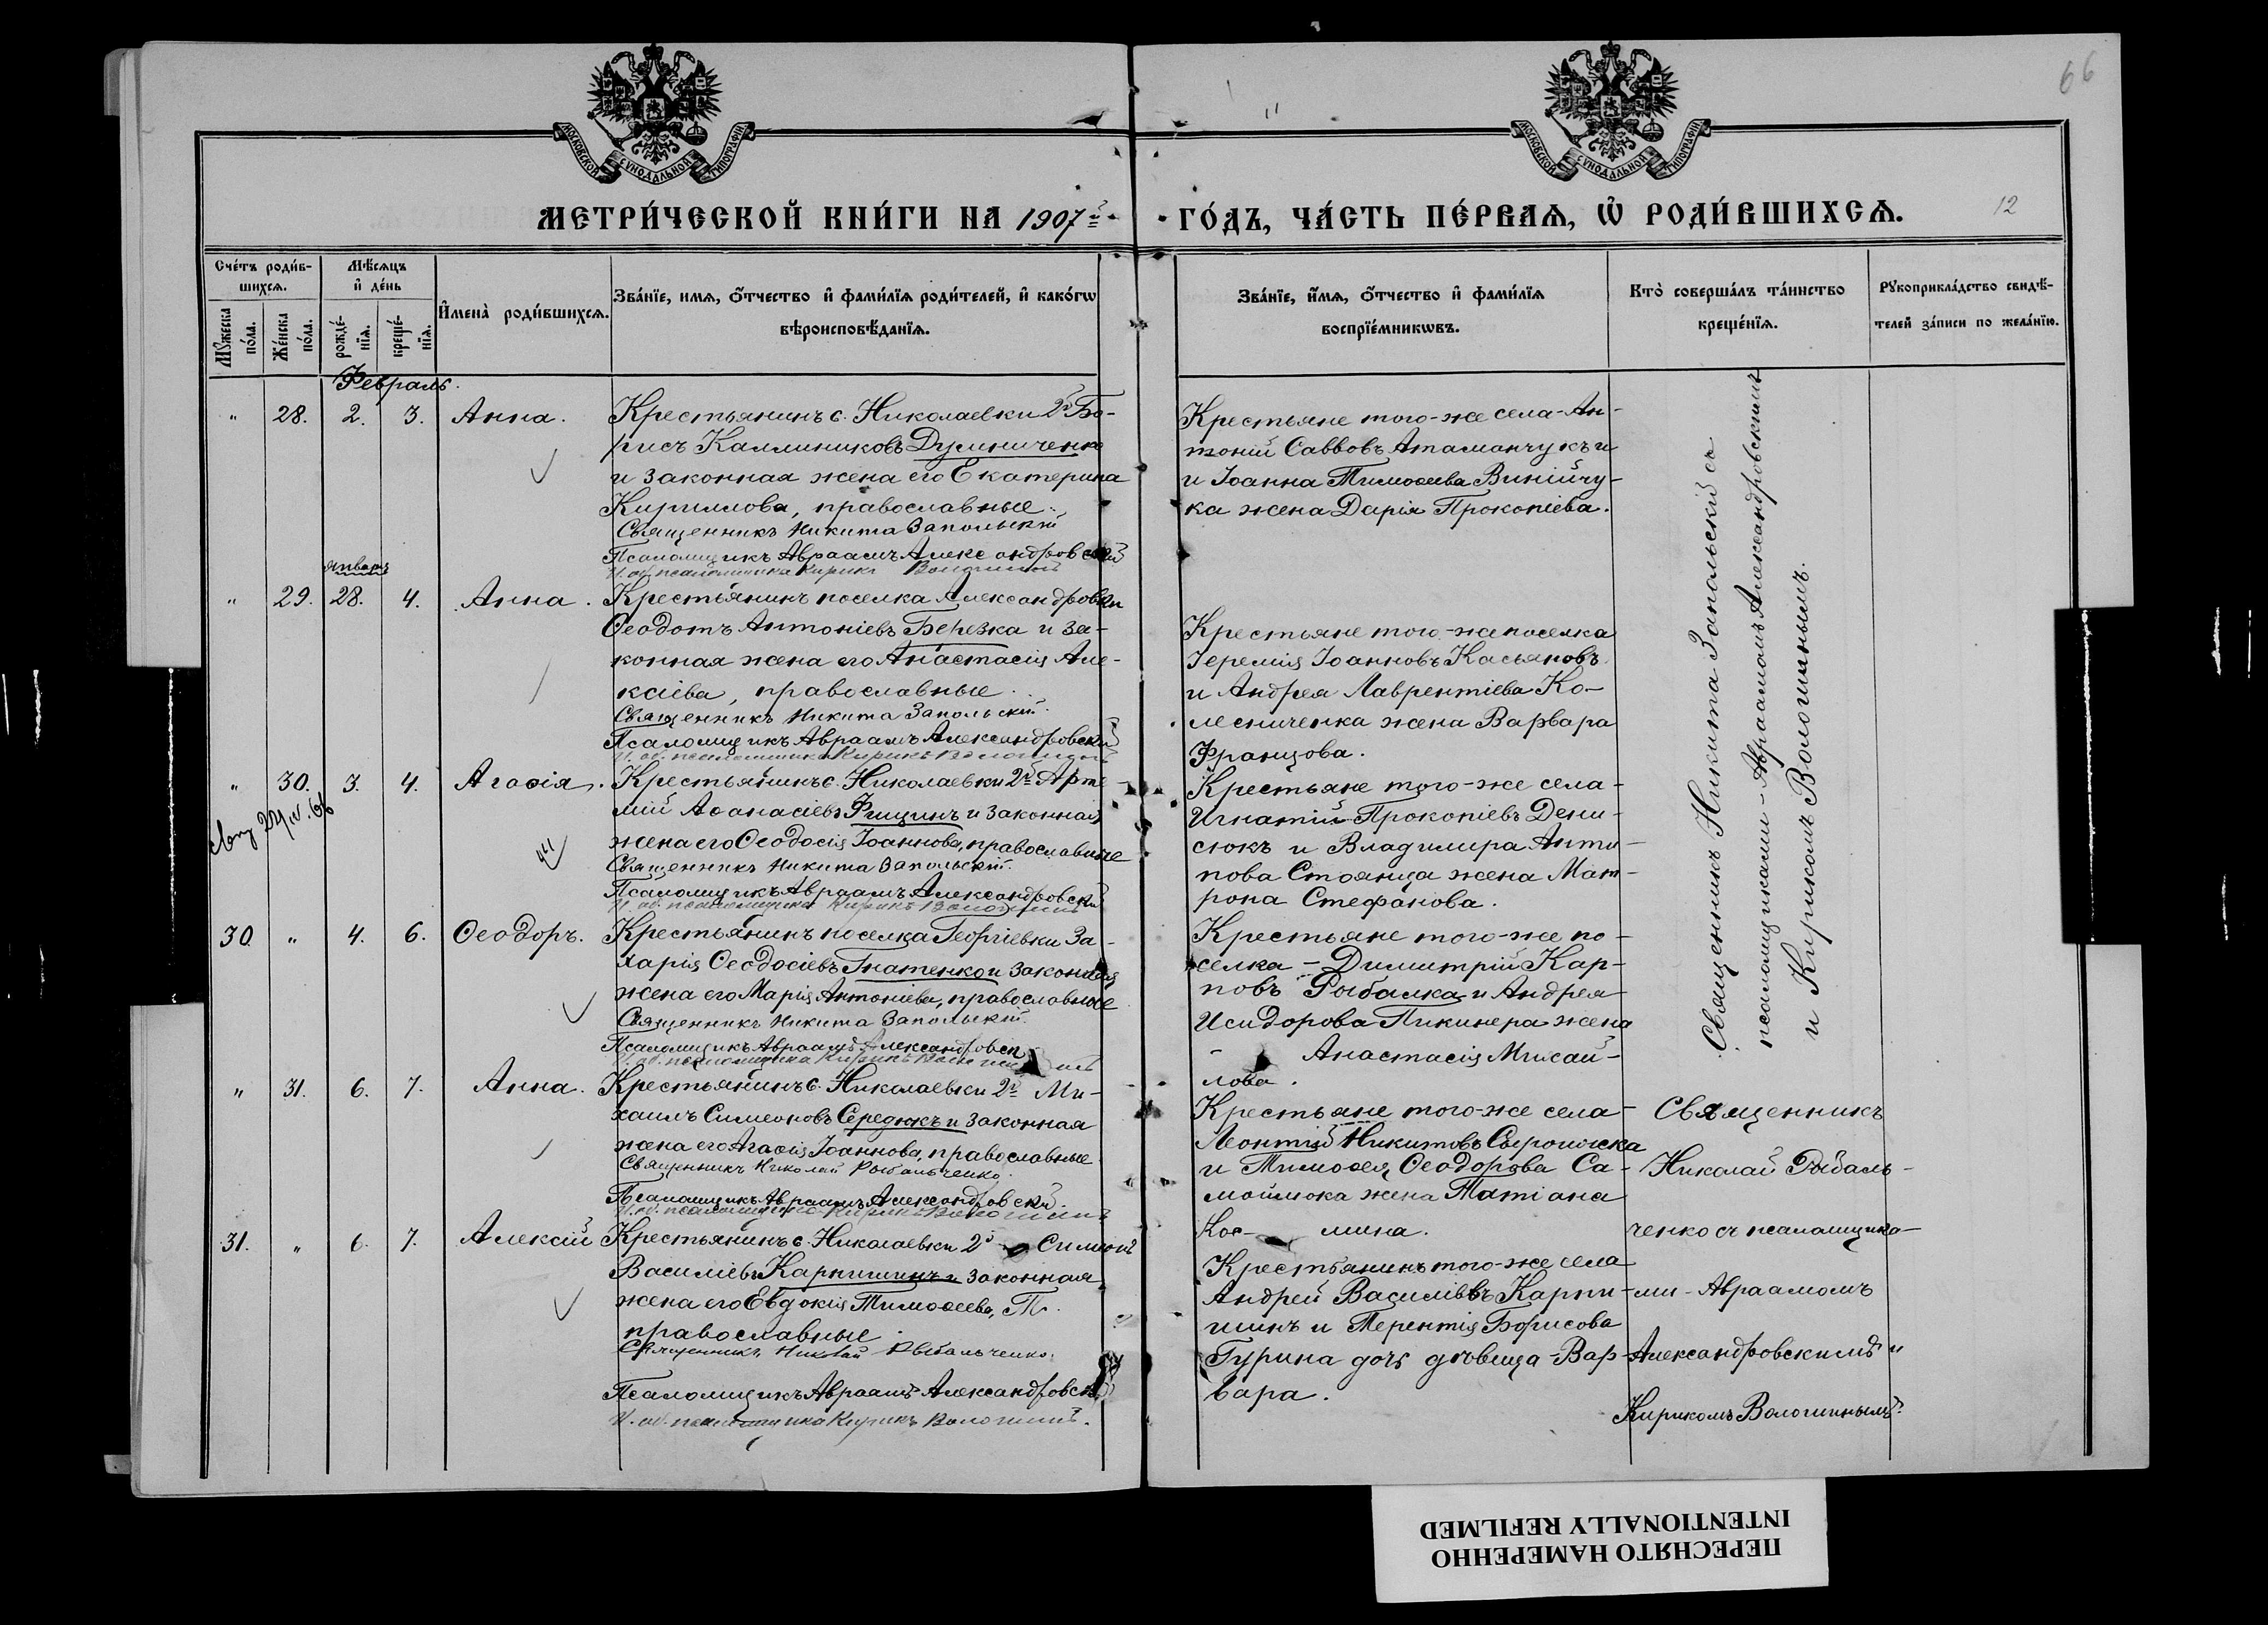 66
МОСКОВСКОЙ СѴНОДАЛЬНОЙ ТИПОГРАФІИ
МОСКОВСКОЙ СѴНОДАЛЬНОЙ ТИПОГРАФІИ
МЕТРИ́ЧЕСКОЙ КНИ́ГИ НА 1907й
ГО́ДЪ, ЧА́СТЬ ПЕ́РВАѦ, Ѡ҆ РОДИ́ВШИХСѦ.
12
Сче́тъ роди́в-
шихсѧ.
Мѣ́сѧцъ
и҆ де́нь
Мꙋ́жеска
по́ла.
Же́нска
по́ла.
рожде́-
нїѧ.
креще́-
нїѧ.
И҆мена̀ роди́вшихсѧ.
Зва́нїе, имѧ, ѻ҆́тчество и҆ фами́лїѧ роди́телей, и҆ како́гѡ
вѣроисповѣ́данїѧ.
Зва́нїе, и҆́мѧ, ѻ҆́тчество и҆ фами́лїѧ
воспрїе́мникѡвъ.
Кто̀ соверша́лъ та́инство
креще́нїѧ.
Рꙋкоприкла́дство свидѣ́-
телей за́писи по жела́нїю.
Февраль.
" 28. 2. 3. Анна.
Крестьянинъ с. Николаевки 2й Бо-
рисъ Каллиниковъ Думиниченко
и законная жена его Екатерина
Кириллова, православные.
Священникъ Никита Запольскій
Псаломщикъ Авраамъ Александровскій
И. об. псаломщика Кирикъ Волошинъ
Крестьяне того-же села - Ан-
тоній Саввовъ Атаманчукъ и
и Іоанна Тимоѳеева Винійчу-
ка жена Дарія Прокопіева.
январь
" 29. 28. 4. Анна.
Крестьянинъ поселка Александровки
Ѳеодотъ Антоніевъ Березка и за-
конная жена его Анастасія Але-
ксіева, православные.
Священникъ Никита Запольскій.
Псаломщикъ Авраамъ Александровскій
И. об. псаломщика Кирикъ Волошинъ
Крестьяне того-же поселка
Іеремія Іоанновъ Касьяновъ
и Андрея Лаврентіева Ко-
лесниченка жена Варвара
Францова.
" 30. 3. 4. Агаѳія.
Крестьянинъ с. Николаевки 2й Арте-
мій Аѳанасіевъ Фищинъ и законная
жена его Ѳеодосія Іоаннова, православные
Священникъ Никита Запольскій.
Псаломщикъ Авраамъ Александровскій
И. об. псаломщика Кирикъ Волошинъ
Крестьяне того-же села -
Игнатій Прокопіевъ Дени-
сюкъ и Владимира Анти-
пова Стоянца жена Мат-
рона Стефанова.
30. " 4. 6. Ѳеодоръ.
Крестьянинъ поселка Георгіевки За-
харія Ѳеодосіевъ Гнатенко и законная
жена его Марія Антоніева, православные
Священникъ Никита Запольскій.
Псаломщикъ Авраамъ Александровск
И. об. псаломщика Кирикъ Волошинъ
Крестьяне того-же по-
селка - Димитрій Кар-
повъ Рыбалка и Андрея
Исидорова Пикинера жена
- Анастасія Михай-
лова.
Священникъ Никита Запольскій съ
псаломщиками - Авраамомъ Александровскимъ
и Кирикомъ Волошинымъ.
" 31. 6. 7. Анна.
Крестьянинъ с. Николаевки 2й Ми-
хаилъ Симеоновъ Середюкъ и законная
жена его Агаѳія Іоаннова, православные.
Священникъ Николай Рыбальченко
Псаломщикъ Авраамъ Александровскій.
И. об. псаломщика Кирикъ Волошинъ
Крестьяне того-же села -
Леонтій Никитовъ
и Тимоѳея Ѳеодорова Са-
мойлюка жена Татіана
Кос- мина.
31. " 6. 7. Алексій
Крестьянинъ с. Николаевки 2й Симеонъ
Василіевъ Карпишинъ и законная
жена его Евдокія Тимоѳеева,
православные.
Священникъ Николай Рыбальченко.
Псаломщикъ Авраамъ Александровскій
И. об. псаломщика Кирикъ Волошинъ.
Крестьянинъ того-же села
Андрей Василіевъ Карпи-
шинъ и Терентія Борисова
Гурина дочь дѣвица - Вар-
вара.
Священникъ
Николай Рыбаль-
ченко съ псаломщика-
ми - Авраамомъ
Александровскимъ и
Кирикомъ Волошинымъ.
ПЕРЕСНЯТО НАМЕРЕННО
INTENTIONALLY REFILMED